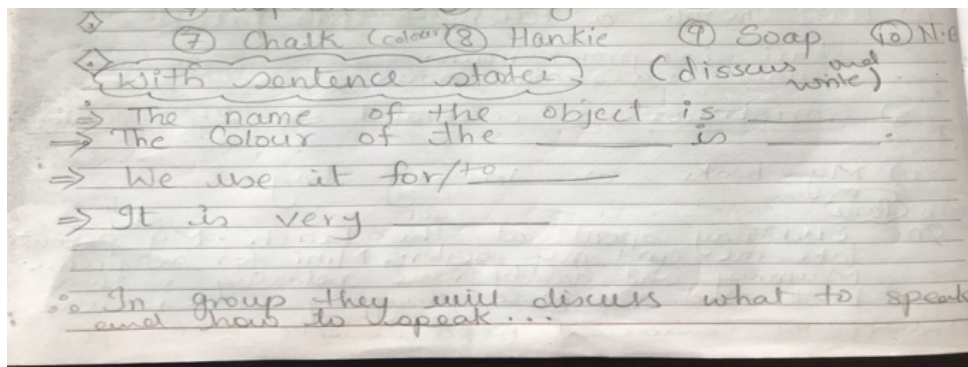 ⑦ Chalk (colour) ⑧ Hankie ⑨ Soap ⑩ N.B
With sentence stater (disscus and write)
⇒ The name of the object is ______
⇒ The Colour of the ______ is ______.
⇒ We use it for/to ______
⇒ It is very ______
In group they will discuss what to speak
and how to speak...